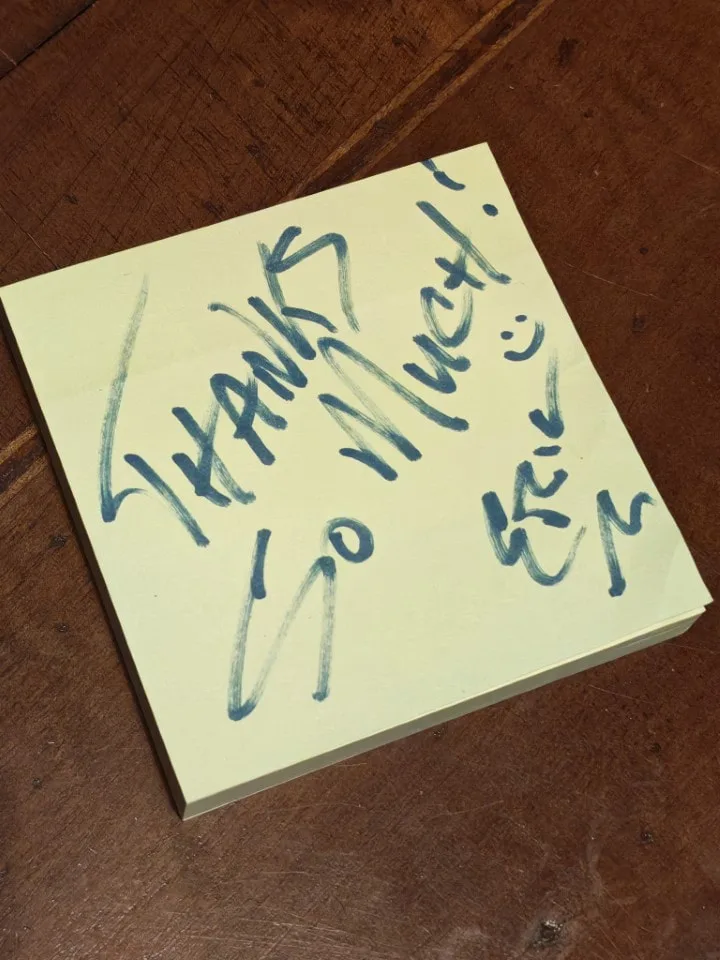 THANKS
SO MUCH!
:)
Eric